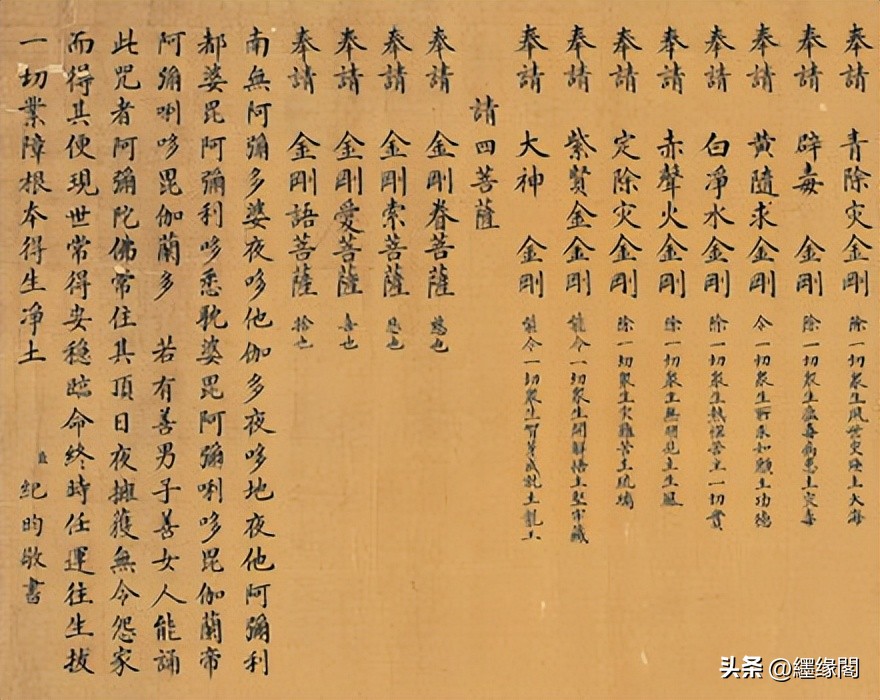 奉請　青除灾金剛　除一切眾生風世灾障主大海
奉請　辟毒　金剛　除一切眾生瘟毒病患主灾毒
奉請　黃隨求金剛　令一切眾生所求如願主功德
奉請　白淨水金剛　除一切眾生熱惱苦主一切寶
奉請　赤聲火金剛　除一切眾生無明見主生風
奉請　定除灾金剛　除一切眾生灾難苦主琉璃
奉請　紫賢金金剛　能令一切眾生開解悟主堅牢藏
奉請　大神　金剛　能令一切眾生智芽成就主龍王
請四菩薩
奉請　金剛眷菩薩　慈也
奉請　金剛索菩薩　悲也
奉請　金剛愛菩薩　喜也
奉請　金剛語菩薩　捨也
南無阿彌多婆夜哆他伽多夜哆地夜他阿彌利
都婆毘阿彌利哆悉耽婆毘阿彌唎哆毘伽蘭帝
阿彌唎哆毘伽蘭多　若有善男子善女人能誦
此咒者阿彌陀佛常住其頂日夜擁護無令怨家
而得其便現世常得安穩臨命終時任運往生拔
一切業障根本得生淨土　臣　紀昀敬書
头条 @纆缘閣